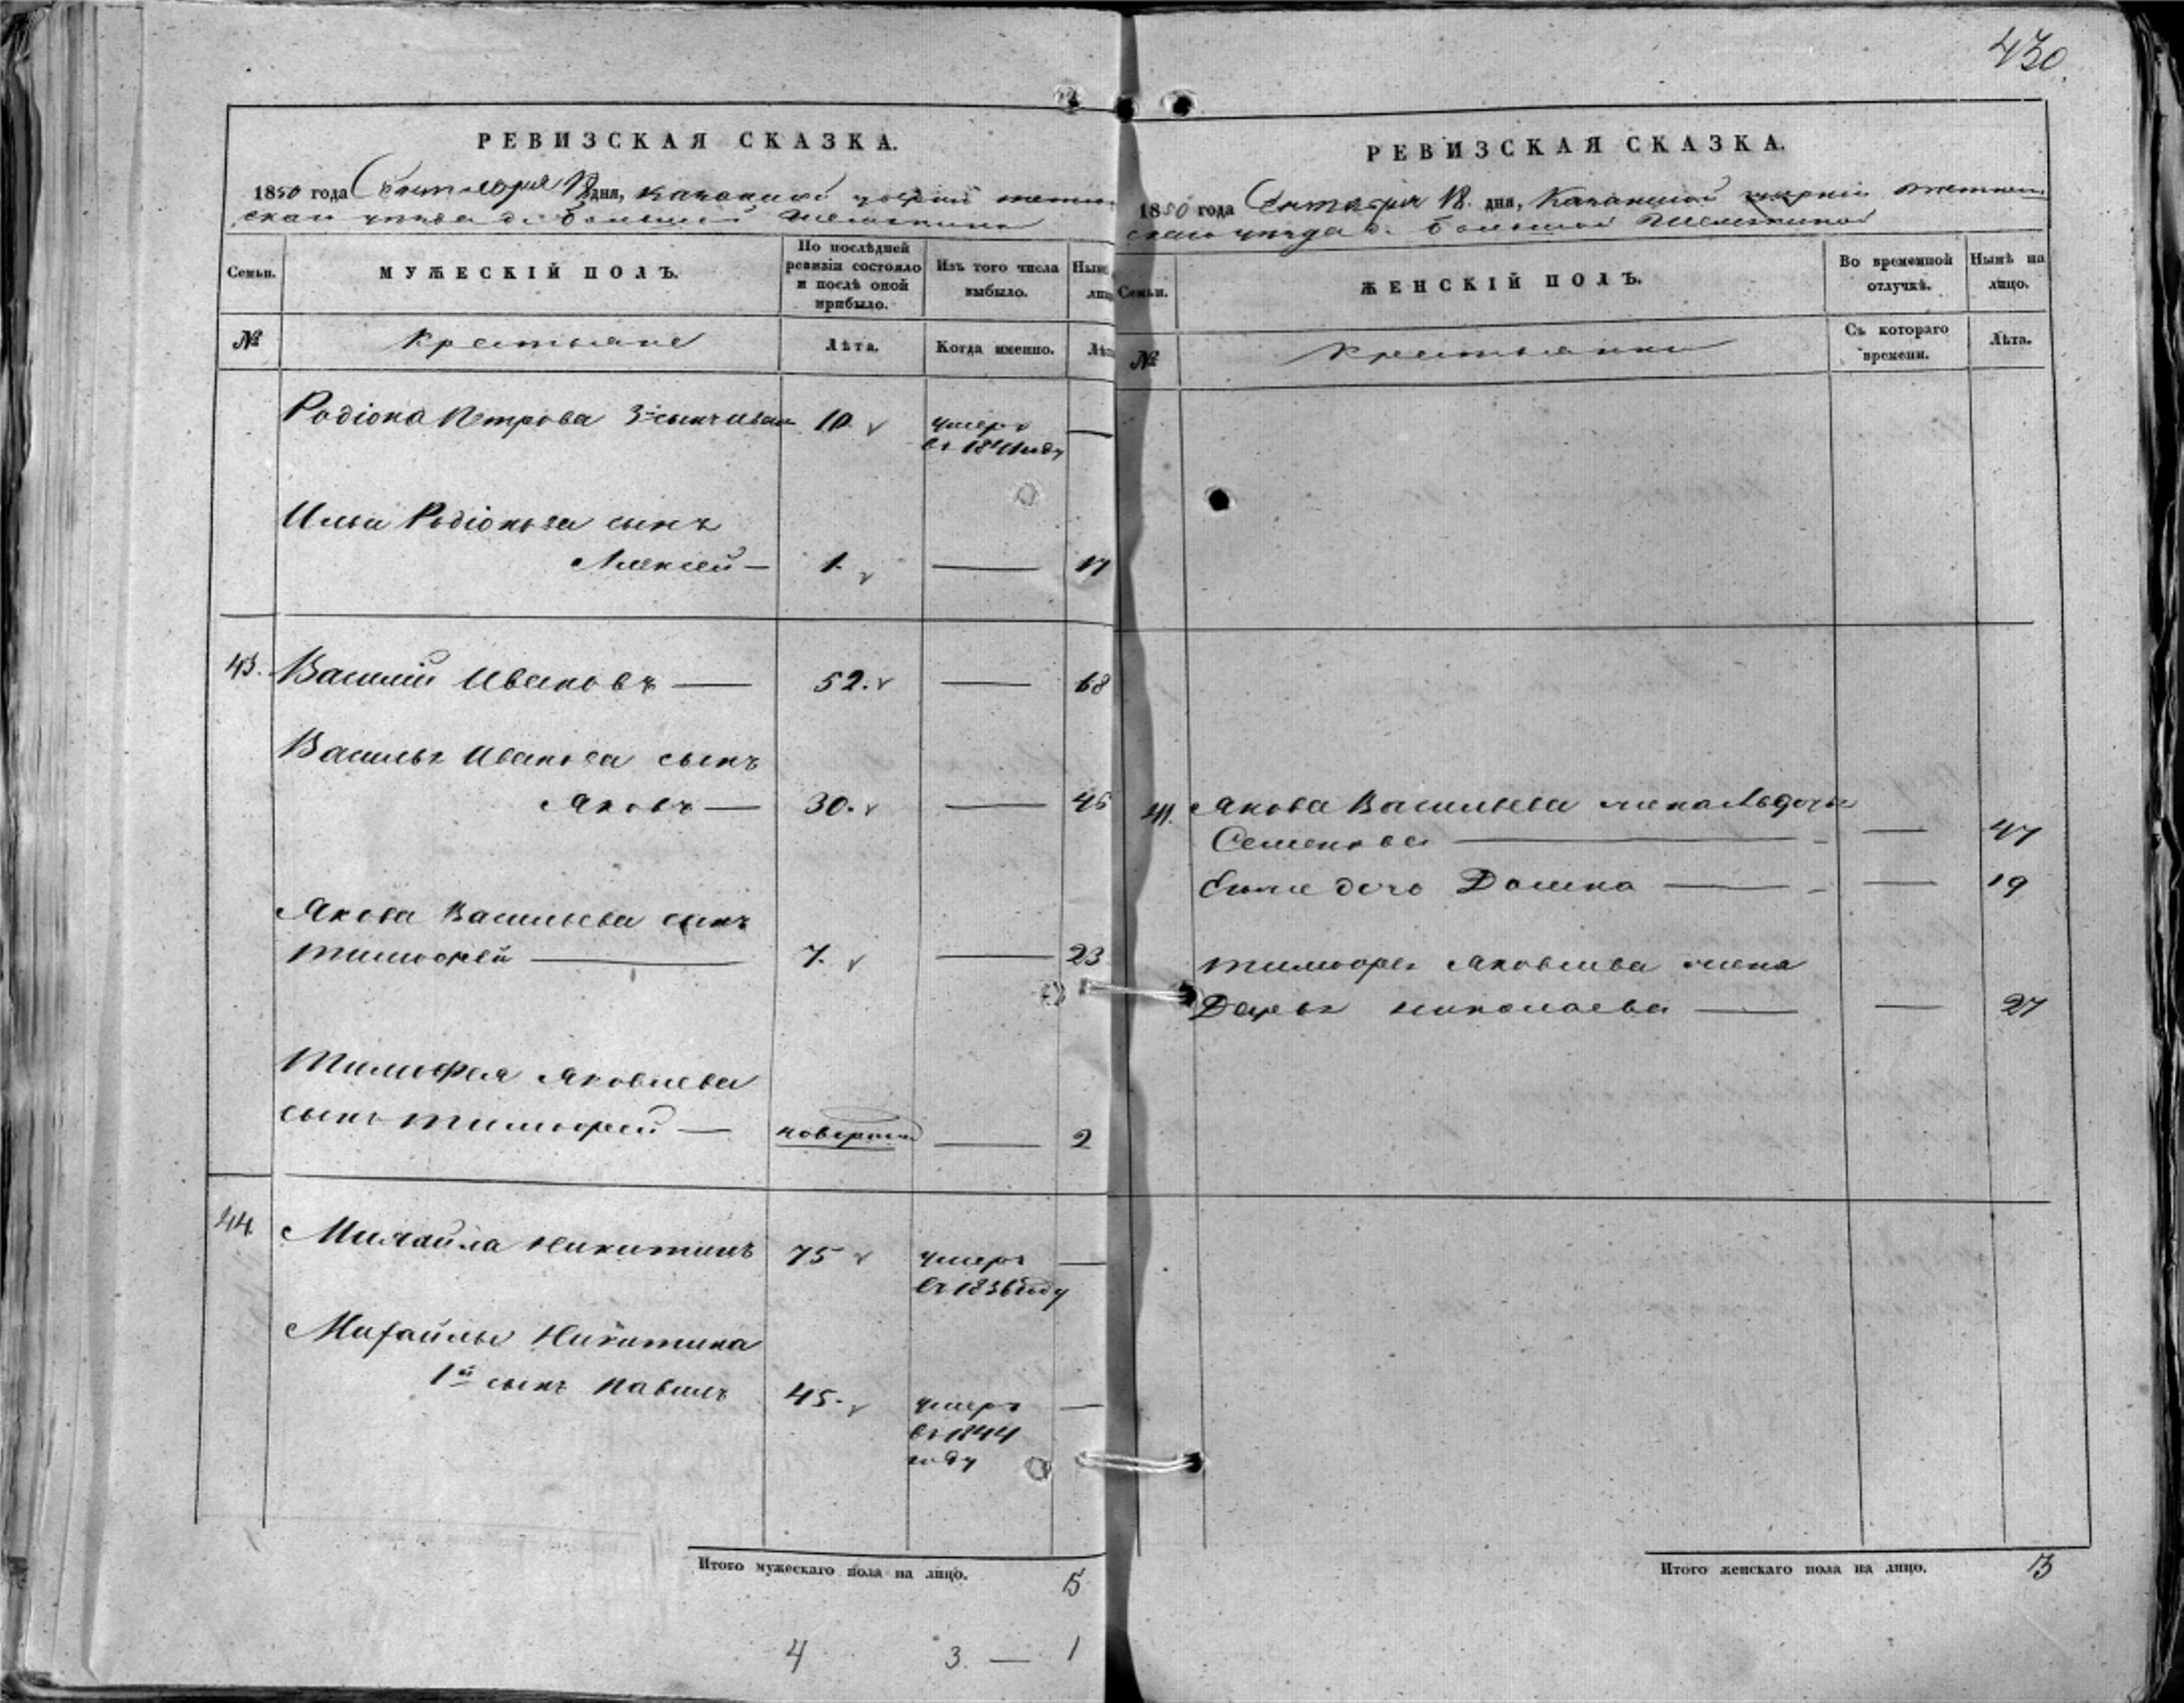 430.
РЕВИЗСКАЯ СКАЗКА.
1850 года Сентября 18 дня, Казанской губернии
скаго уѣзда д. Большой
Семьи.
МУЖЕСКІЙ ПОЛЪ.
По послѣдней
ревизіи состояло
и послѣ оной
прибыло.
Изъ того числа
выбыло.
№
Крестьяне
Лѣта.
Когда именно.
Родіона Петрова 3й сынъ Иванъ 10. умеръ —
въ 1841 году
Ильи Родіонова сынъ
Алексей — 1. — 17
43. Василій Ивановъ — 52. — 68
Василья Иванова сынъ
Яковъ — 30. — 46
Якова Васильева сынъ
Тимофей — 7. — 23
Тимофея Яковлева
сынъ Тимофей — — 2
44. Михайла Никитинъ 75 умеръ —
въ 1836 году
Михайлы Никитина
1й сынъ Павелъ 45. умеръ —
въ 1844
году
Итого мужескаго пола на лицо. 5
4 3. — 1
РЕВИЗСКАЯ СКАЗКА.
1850 года Сентября 18. дня, Казанской губерніи
скаго уѣзда д. Большой
Семьи.
ЖЕНСКІЙ ПОЛЪ.
Во временной
отлучкѣ.
Нынѣ на
лицо.
№
Крестьянки
Съ котораго
времени.
Лѣта.
Якова Васильева жена Авдотья
Семенова — — 47
Его же дочь — — 19
Тимофея Яковлева жена
Дарья Николаева — — 27
Итого женскаго пола на лицо. 3